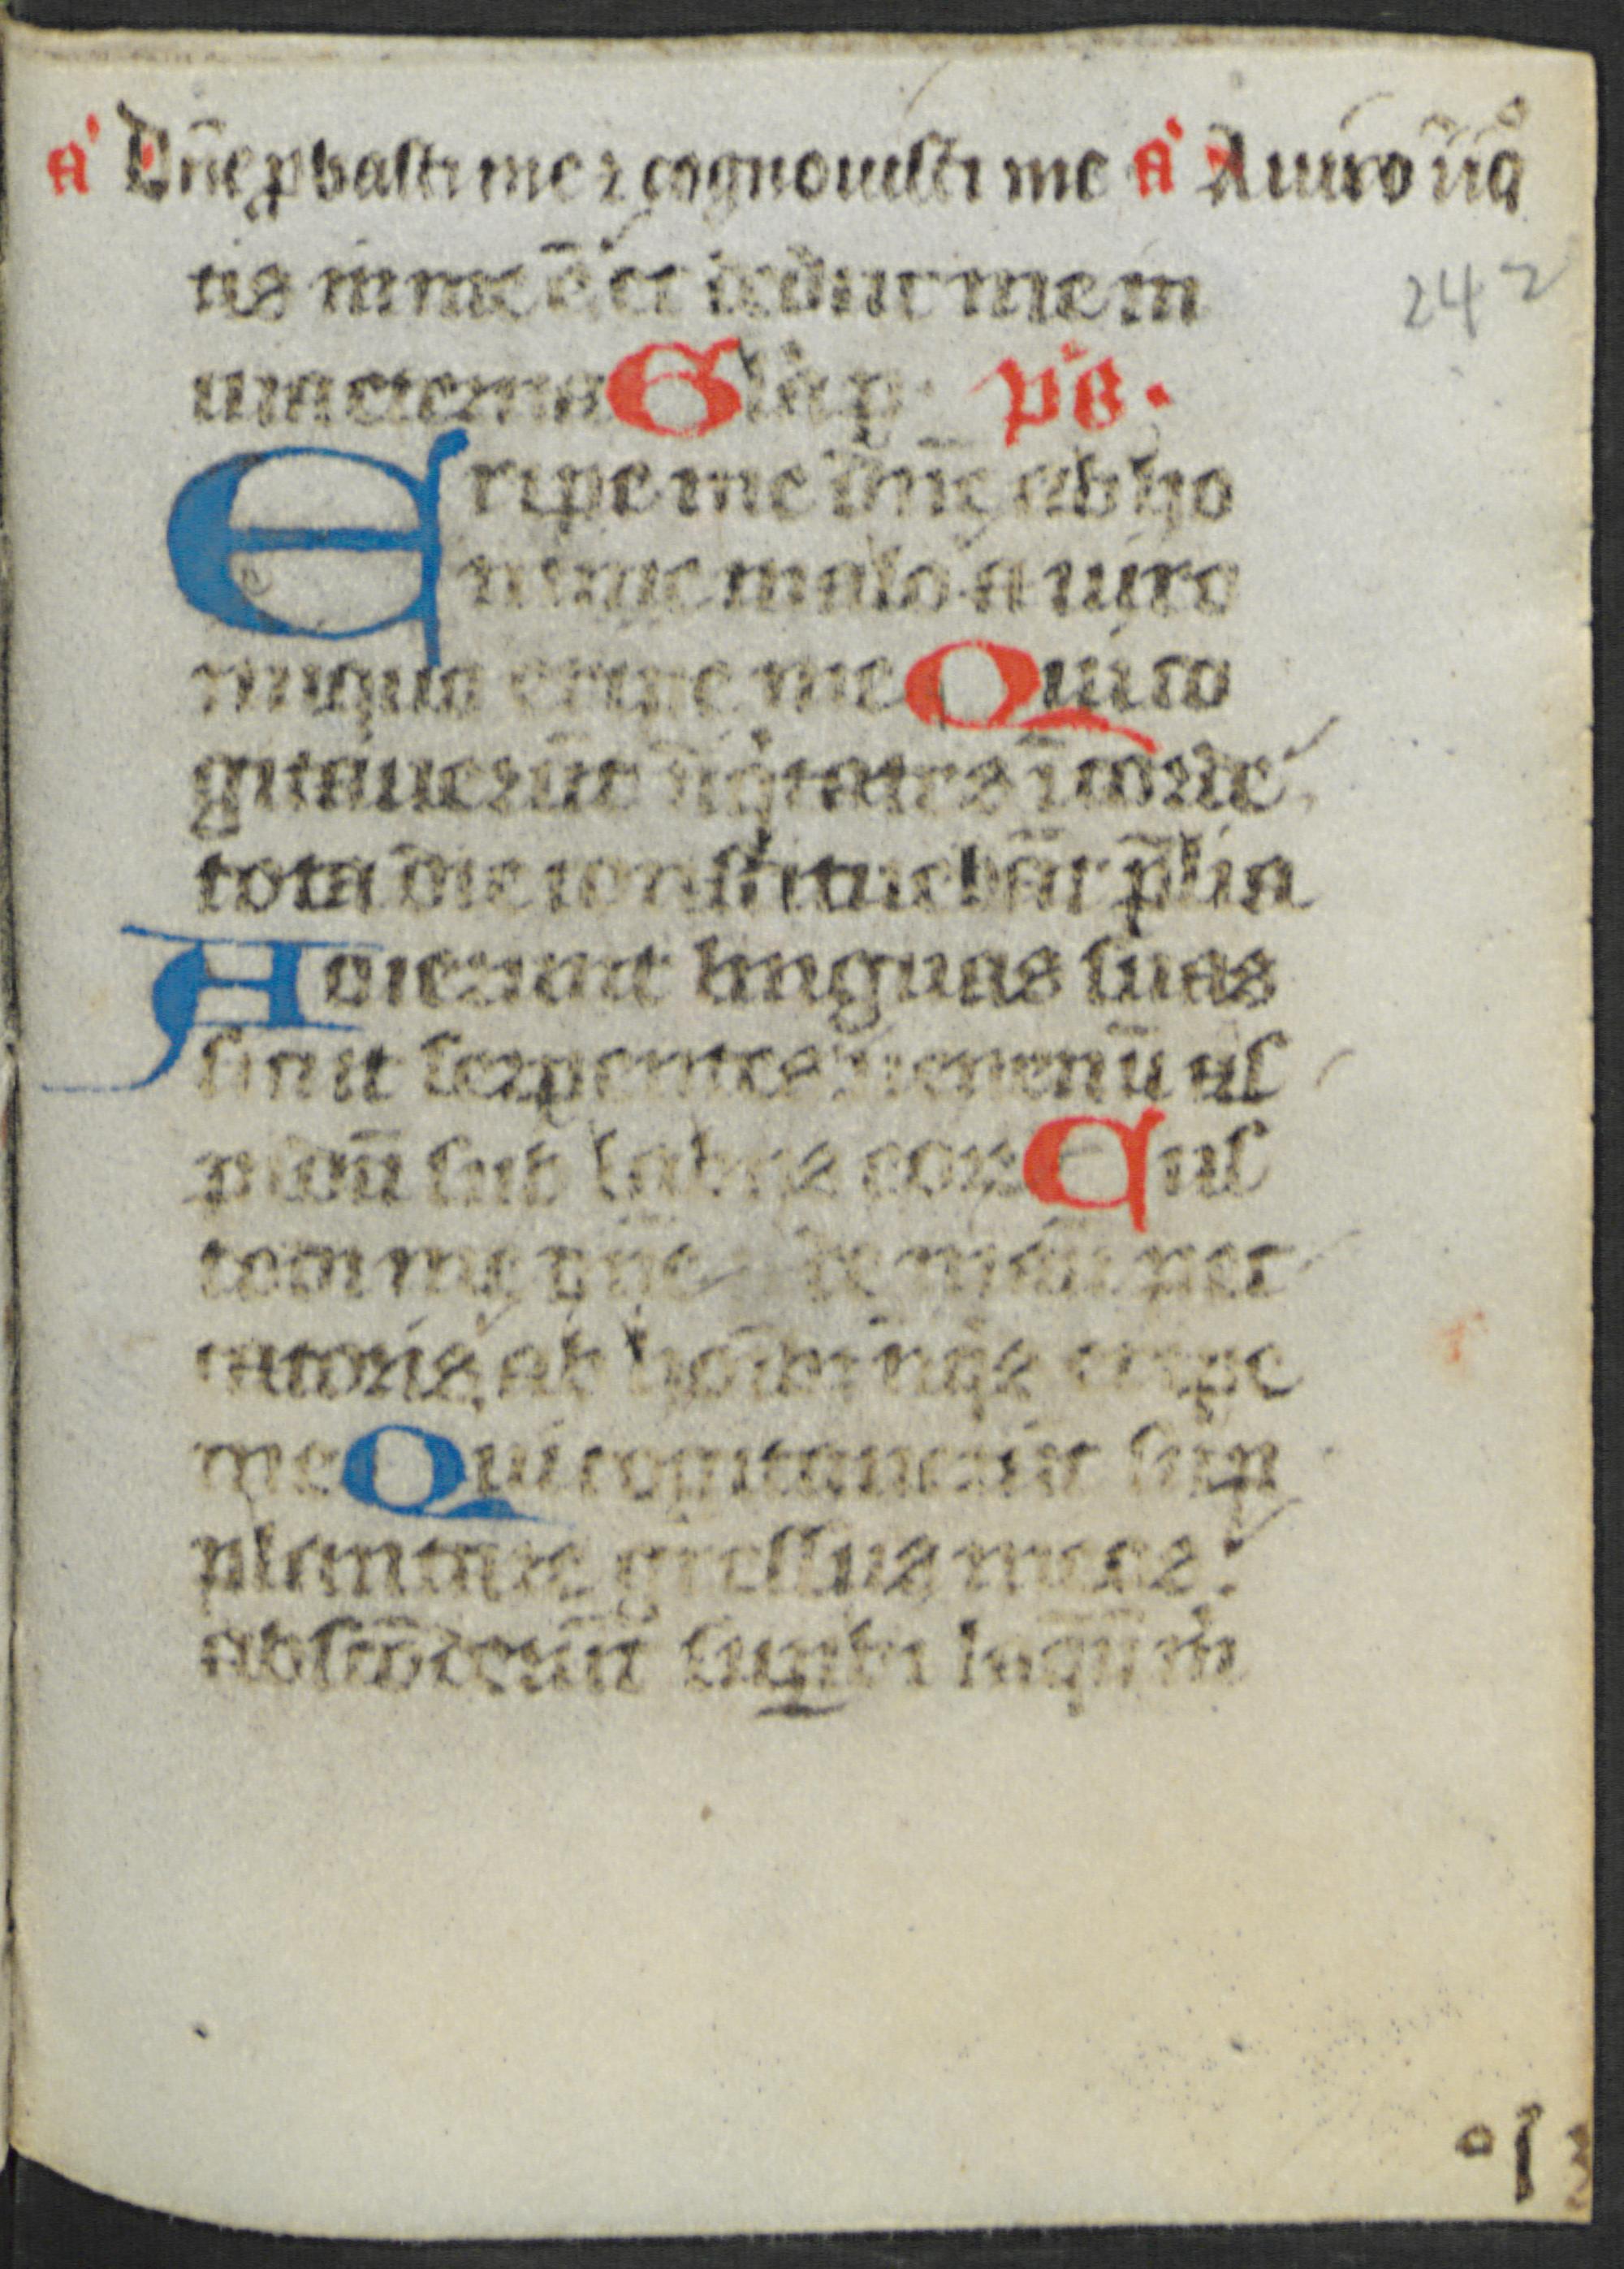 A Dn̄e ꝓbasti me ⁊ cognouisti me A A uiro iniq̊
tis in me ē et deduc me in
uia eterna Glā p. ps.
Eripe me dn̄e ab ho
mine malo a uiro
iniquo eripe me Qui co
gitauerūt īiq̇tates ī corde
tota die constituebāt p̄lia
Acuerunt linguas suas
sicut serpentes uenenū as
pidū sub labiis eorꝝ Cus
todi me dn̄e de manu pec
catoris ab hōibꝫ iniq̇s eripe
me Qui cogitauerūt sup
plantare gressus meos
absconderūt supbi laqueū m̄
242